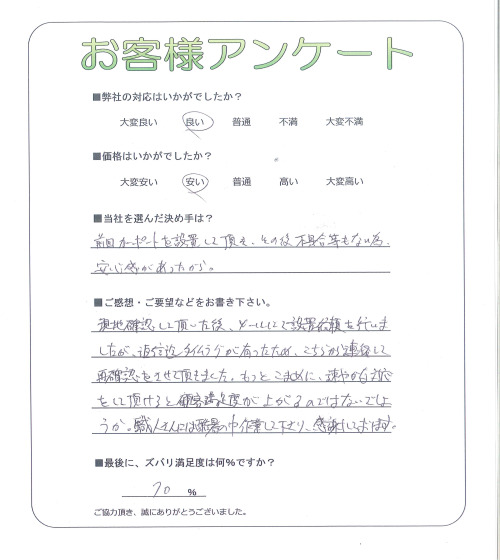 お客様アンケート
■弊社の対応はいかがでしたか？
大変良い 良い 普通 不満 大変不満
■価格はいかがでしたか？
大変安い 安い 普通 高い 大変高い
■当社を選んだ決め手は？
前回カーポートを設置して頂き、その後不具合等もない為、
安心感があったから。
■ご感想・ご要望などをお書き下さい。
現地確認して頂いた後、メールにて設置依頼を行いま
したが、返信迄タイムラグが有ったため、こちらから連絡して
再確認をさせて頂きました。もっとこまめに、速やかな対応
をして頂けると顧客満足度が上がるのではないでしょ
うか。職人さんには酷暑の中作業して下さり、感謝しております。
■最後に、ズバリ満足度は何%ですか？
70 %
ご協力頂き、誠にありがとうございました。